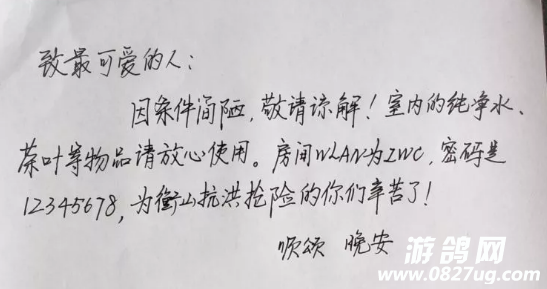 致最可爱的人：
因条件简陋，敬请谅解！室内的纯净水、
茶叶等物品请放心使用。房间WLAN为ZWC，密码是
12345678，为衡山抗洪抢险的你们辛苦了！
顺颂 晚安
游鸽网
www.0827ug.com